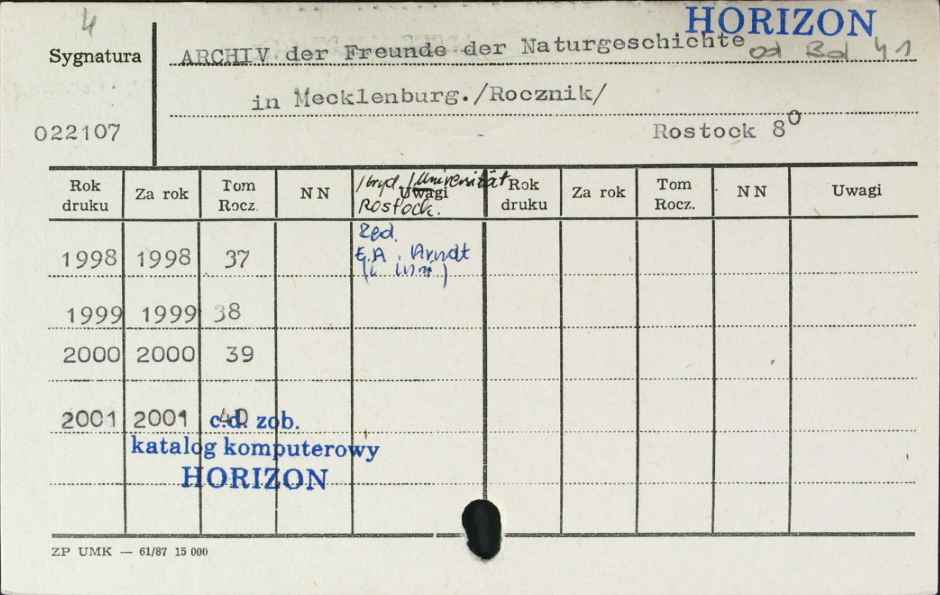 4
HORIZON
Sygnatura
ARCHIV der Freunde der Naturgeschichte
od Bd 41
in Mecklenburg./Rocznik/
022107
Rostock 8⁰
Rok druku Za rok Tom Rocz. NN Uwagi Rok druku Za rok Tom Rocz. NN Uwagi
/wyd./Universität
Rostock.
Red.
1998 1998 37 E.A. Arndt
(i inni)
1999 1999 38
2000 2000 39
2001 2001 40
c.d. zob.
katalog komputerowy
HORIZON
ZP UMK — 61/87 15 000